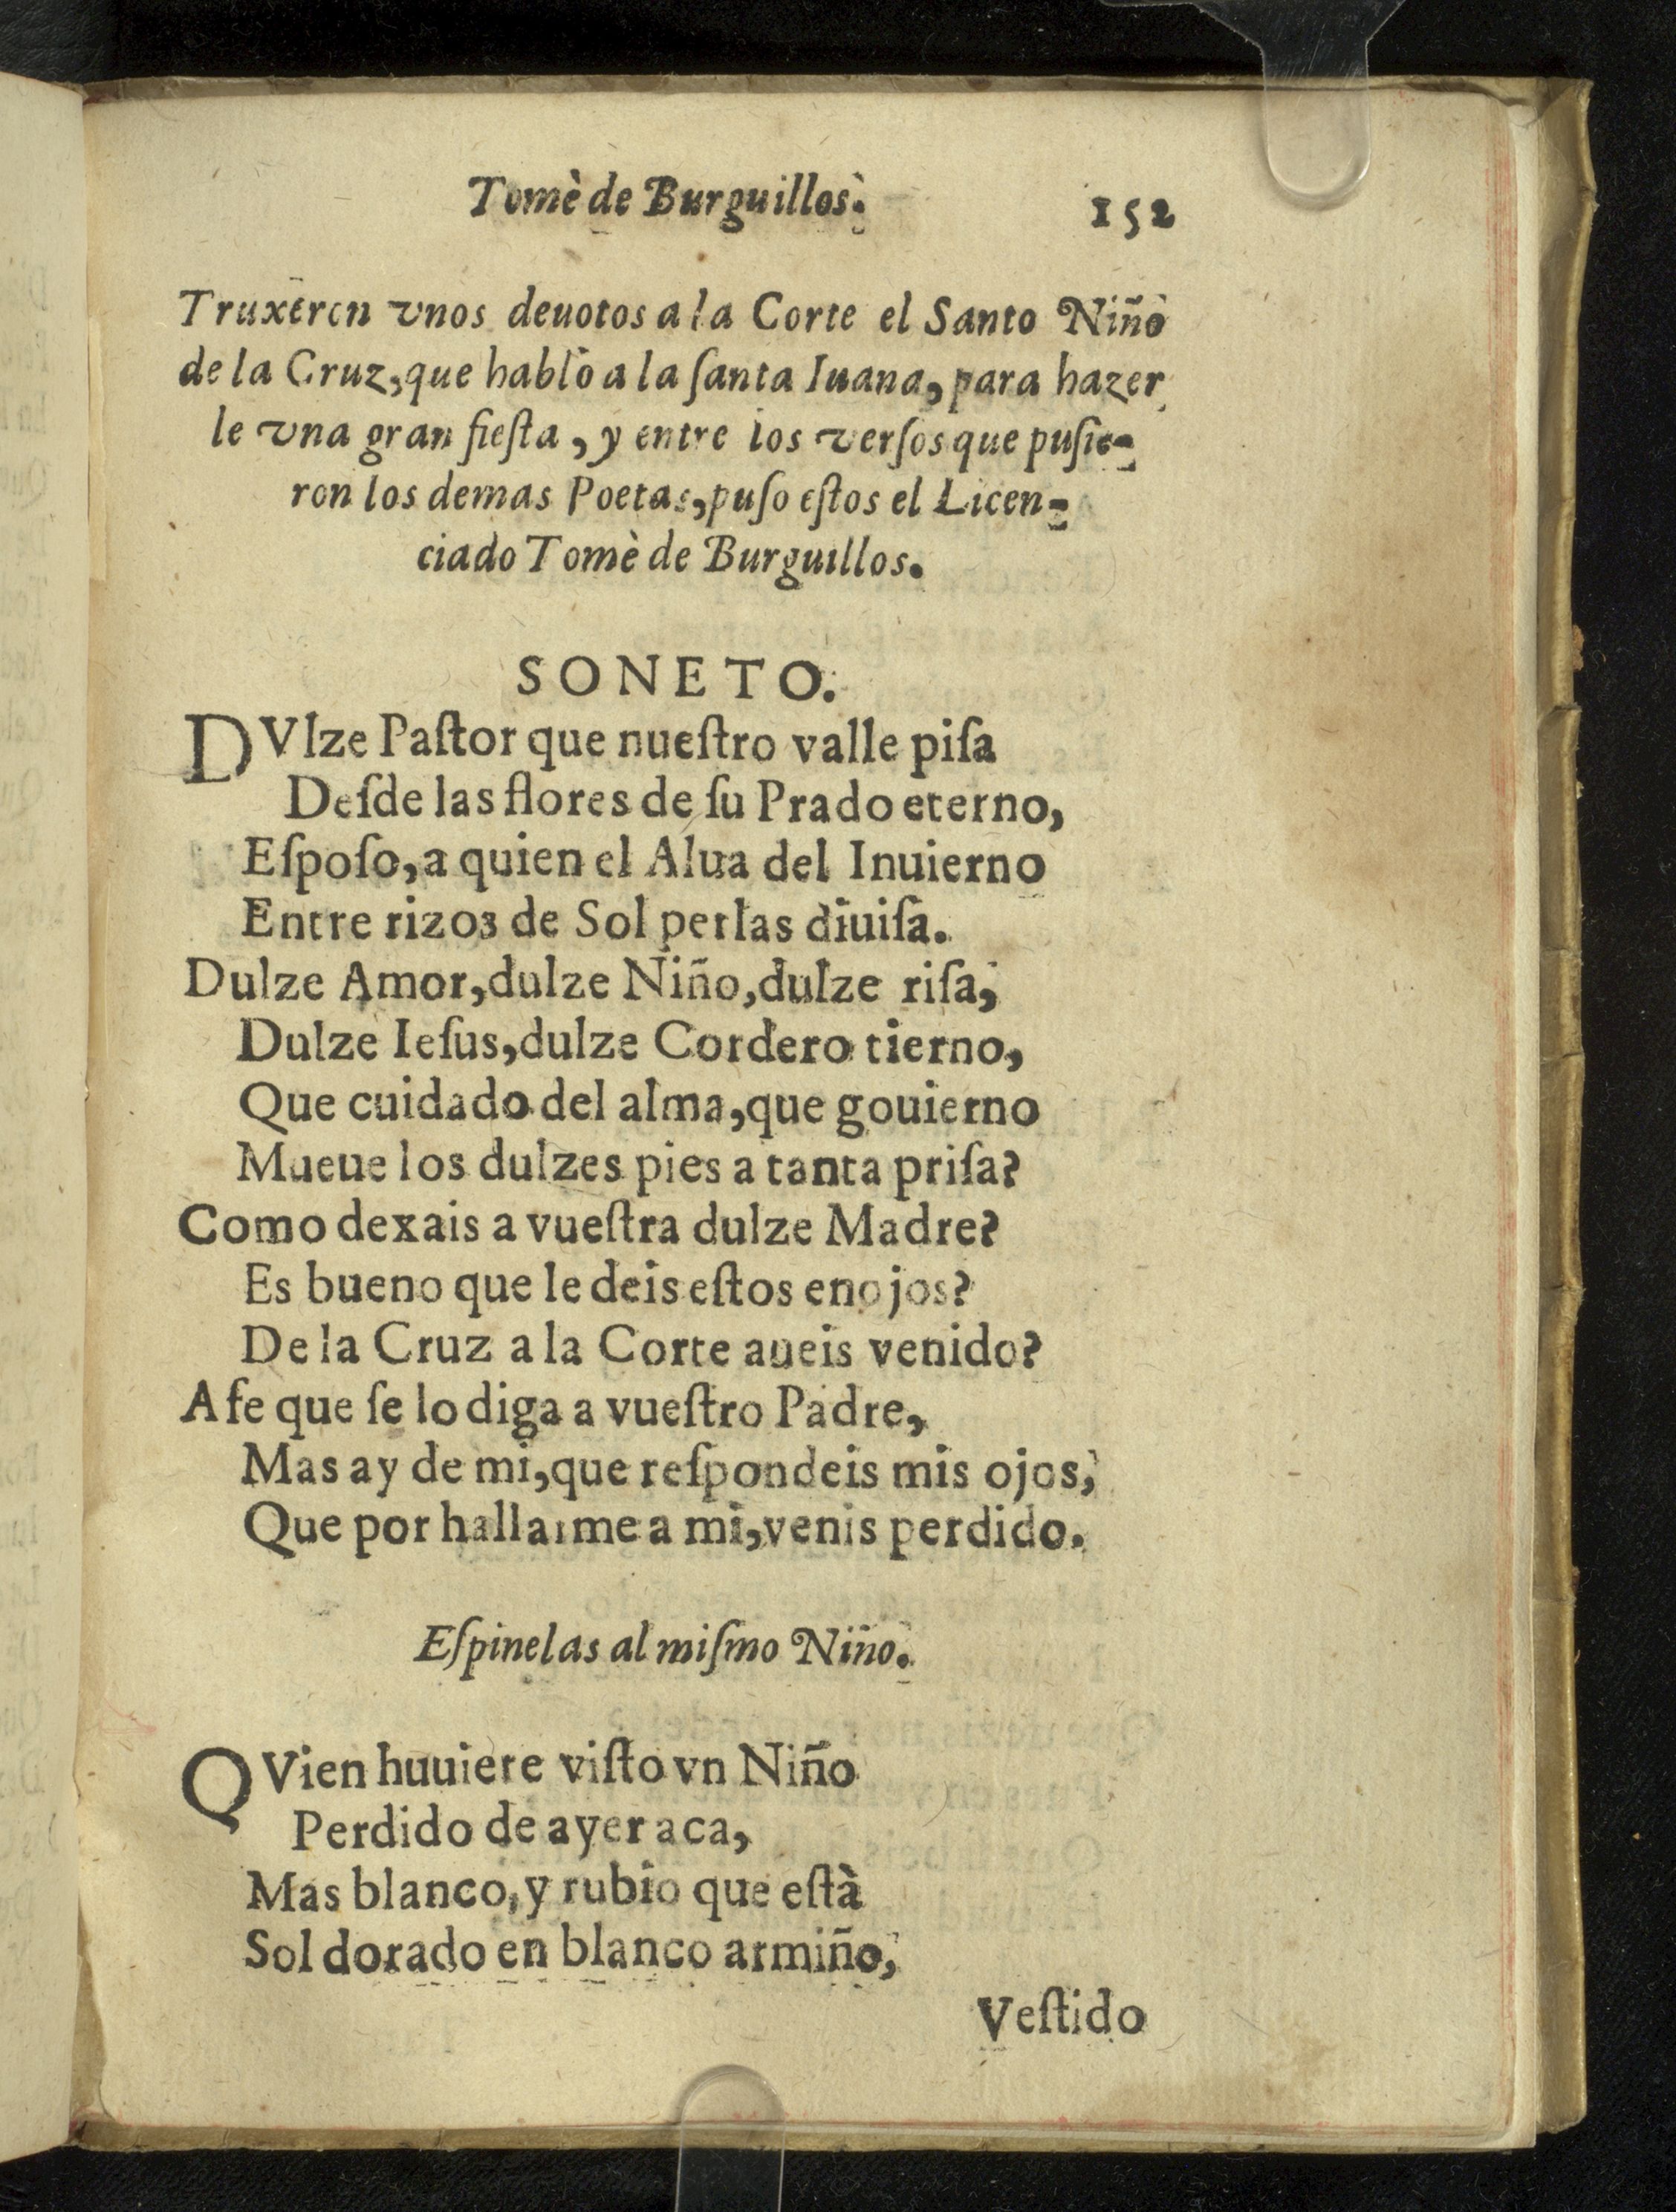 Tomè de Burguillos. 152
Truxeron vnos deuotos a la Corte el Santo Niño
de la Cruz, que hablò a la ſanta Iuana, para hazer
le vna gran fieſta, y entre los verſos que puſie-
ron los demas Poetas, puſo eſtos el Licen-
ciado Tomè de Burguillos.
SONETO.
DVlze Paſtor que nueſtro valle piſa
Deſde las flores de ſu Prado eterno,
Eſpoſo, a quien el Alua del Inuierno
Entre rizos de Sol perlas diuiſa.
Dulze Amor, dulze Niño, dulze riſa,
Dulze Ieſus, dulze Cordero tierno,
Que cuidado del alma, que gouierno
Mueue los dulzes pies a tanta priſa?
Como dexais a vueſtra dulze Madre?
Es bueno que le deis eſtos enojos?
De la Cruz a la Corte aueis venido?
A fe que ſe lo diga a vueſtro Padre,
Mas ay de mi, que reſpondeis mis ojos,
Que por hallarme a mi, venis perdido.
Eſpinelas al miſmo Niño.
QVien huuiere viſto vn Niño
Perdido de ayer aca,
Mas blanco, y rubio que eſtà
Sol dorado en blanco armiño,
Veſtido